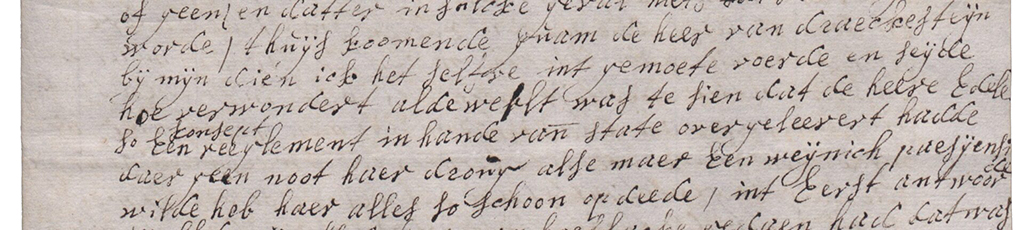 of geen en datter in sulcke geval niet
worde / thuijs koomende quam de heer van draeckesteijn
bij mijn dien ick het selfde int gemoete voerde en seijde
hoe verwondert alde werlt was te sien dat de heere Edele
konsept
so Een reglement in hande van state overgeleevert hadde
daer geen noot haer drong alse maer Een weijnich paesijensi
wilde heb haer alles so schoon op deede / int Eerst antwoorde
had dat was